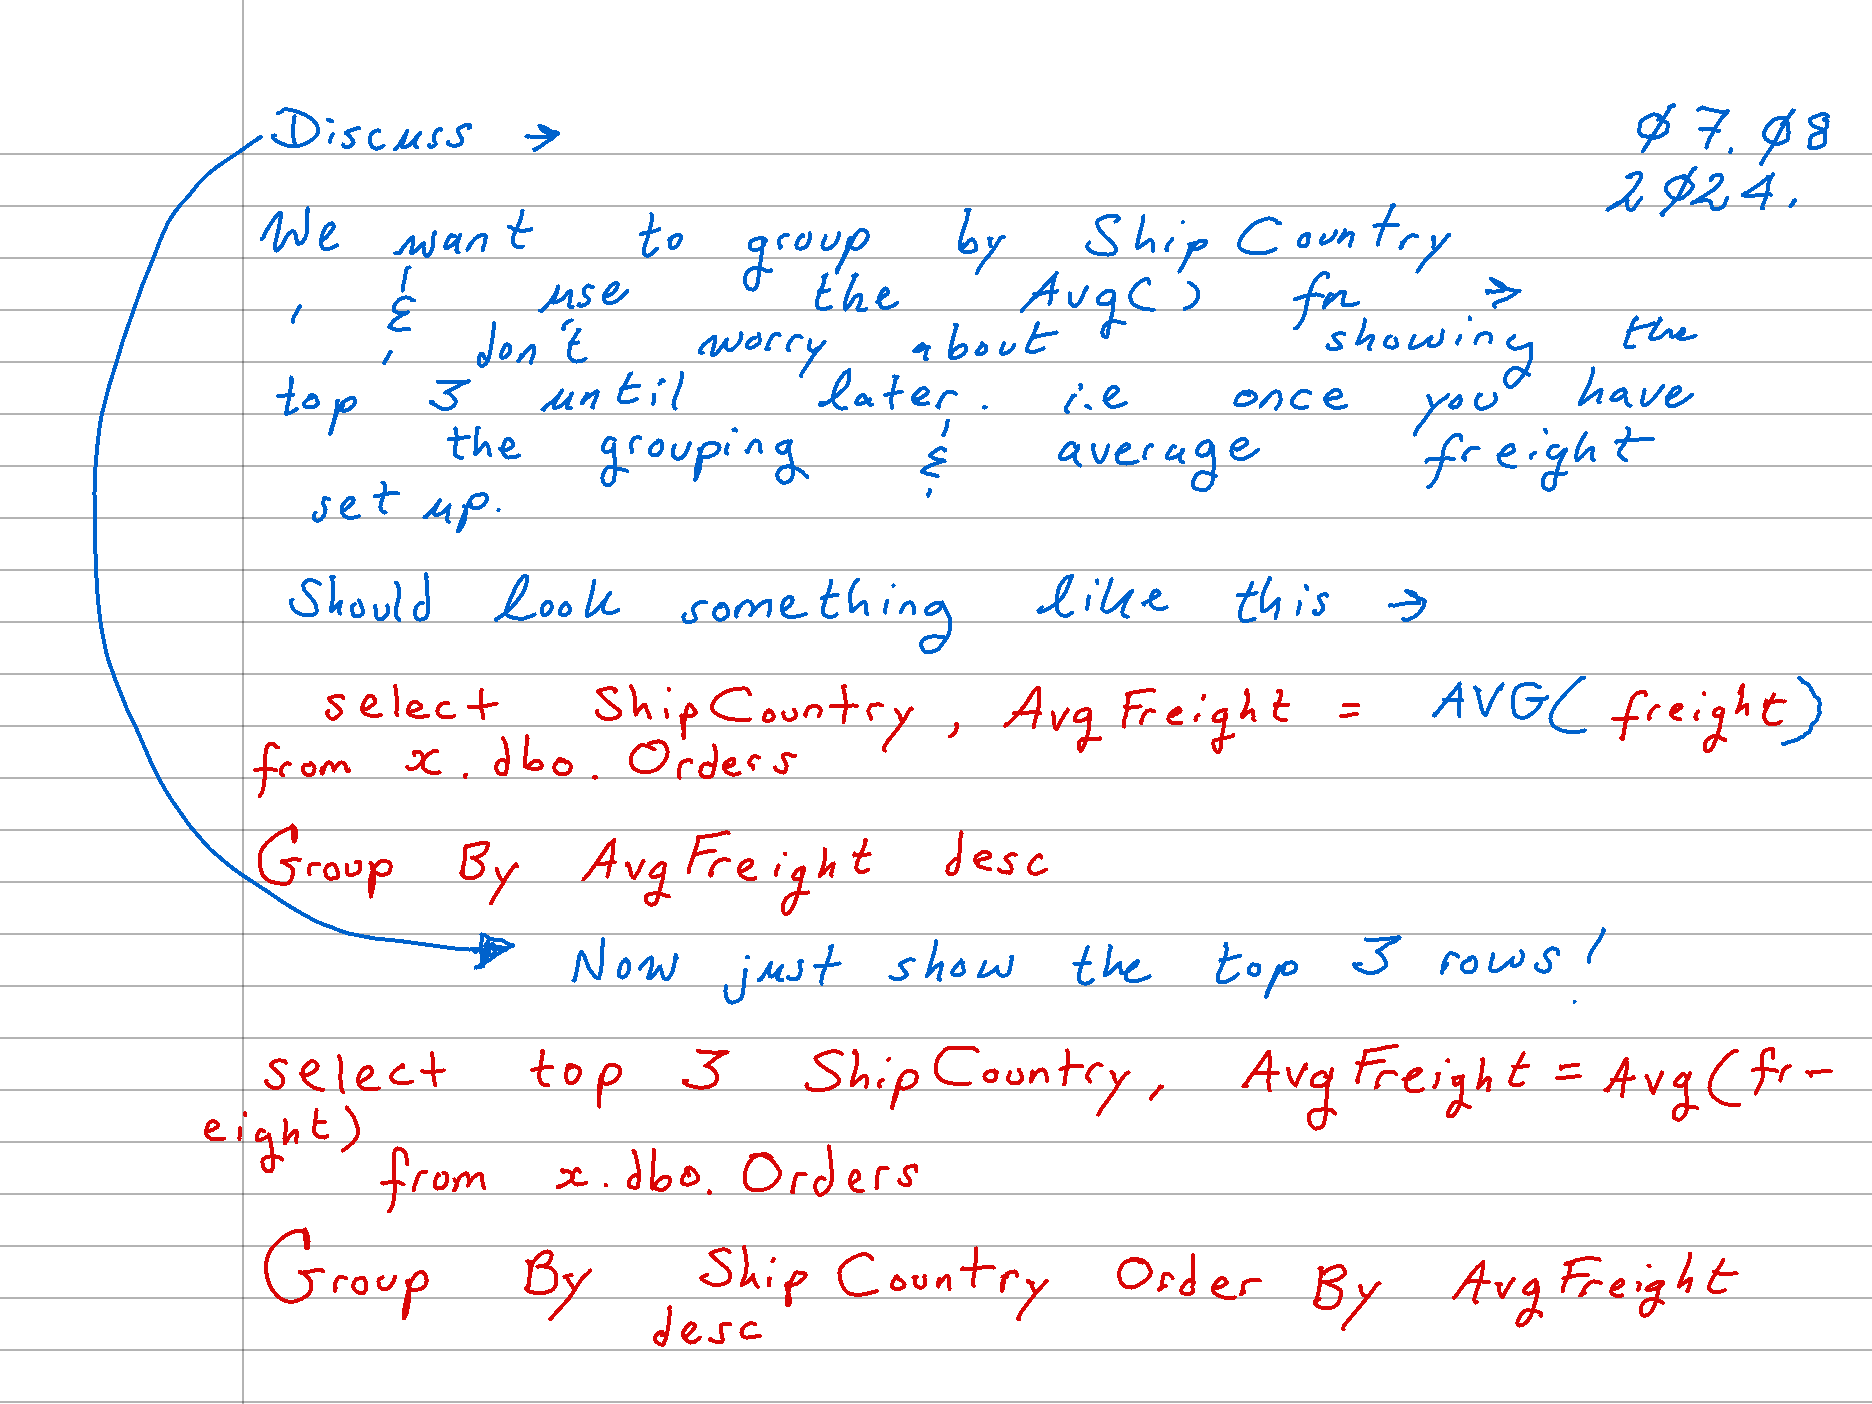 Discuss →
07.08
2024.
We want to group by ShipCountry
, & use the Avg() fn →
, don't worry about showing the
top 3 until later. i.e once you have
the grouping & average freight
set up.
Should look something like this →
select ShipCountry, AvgFreight = AVG(freight)
from x.dbo.Orders
Group By AvgFreight desc
Now just show the top 3 rows!
select top 3 ShipCountry, AvgFreight = Avg(fr-
eight)
from x.dbo.Orders
Group By ShipCountry Order By AvgFreight
desc